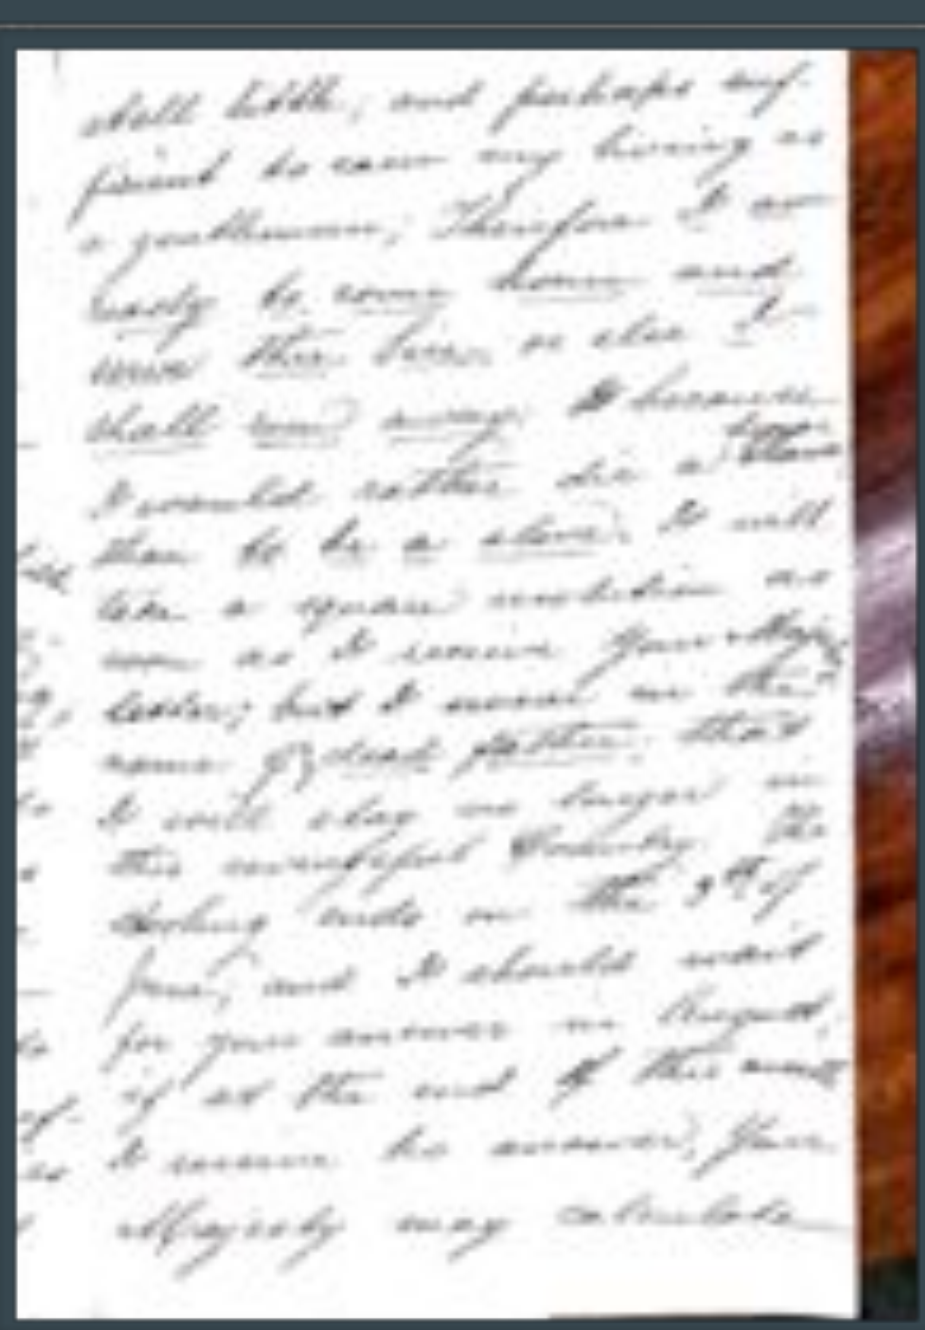 shall little, and perhaps suf-
ficient to earn my living as
a gentleman; Therefore I am
ready to come home and
serve there, or else I
shall away. It because
I would rather die a
than to be a slave. I will
take a square resolution as
soon as I receive Your Majesty's
letter; but I swear in the
name of dead father, that
I will stay no longer in
this Country. The
ends on the 9th of
June, and I should wait
for your answer in August,
if at the end of this month
I receive no answer, Your
Majesty may calculate